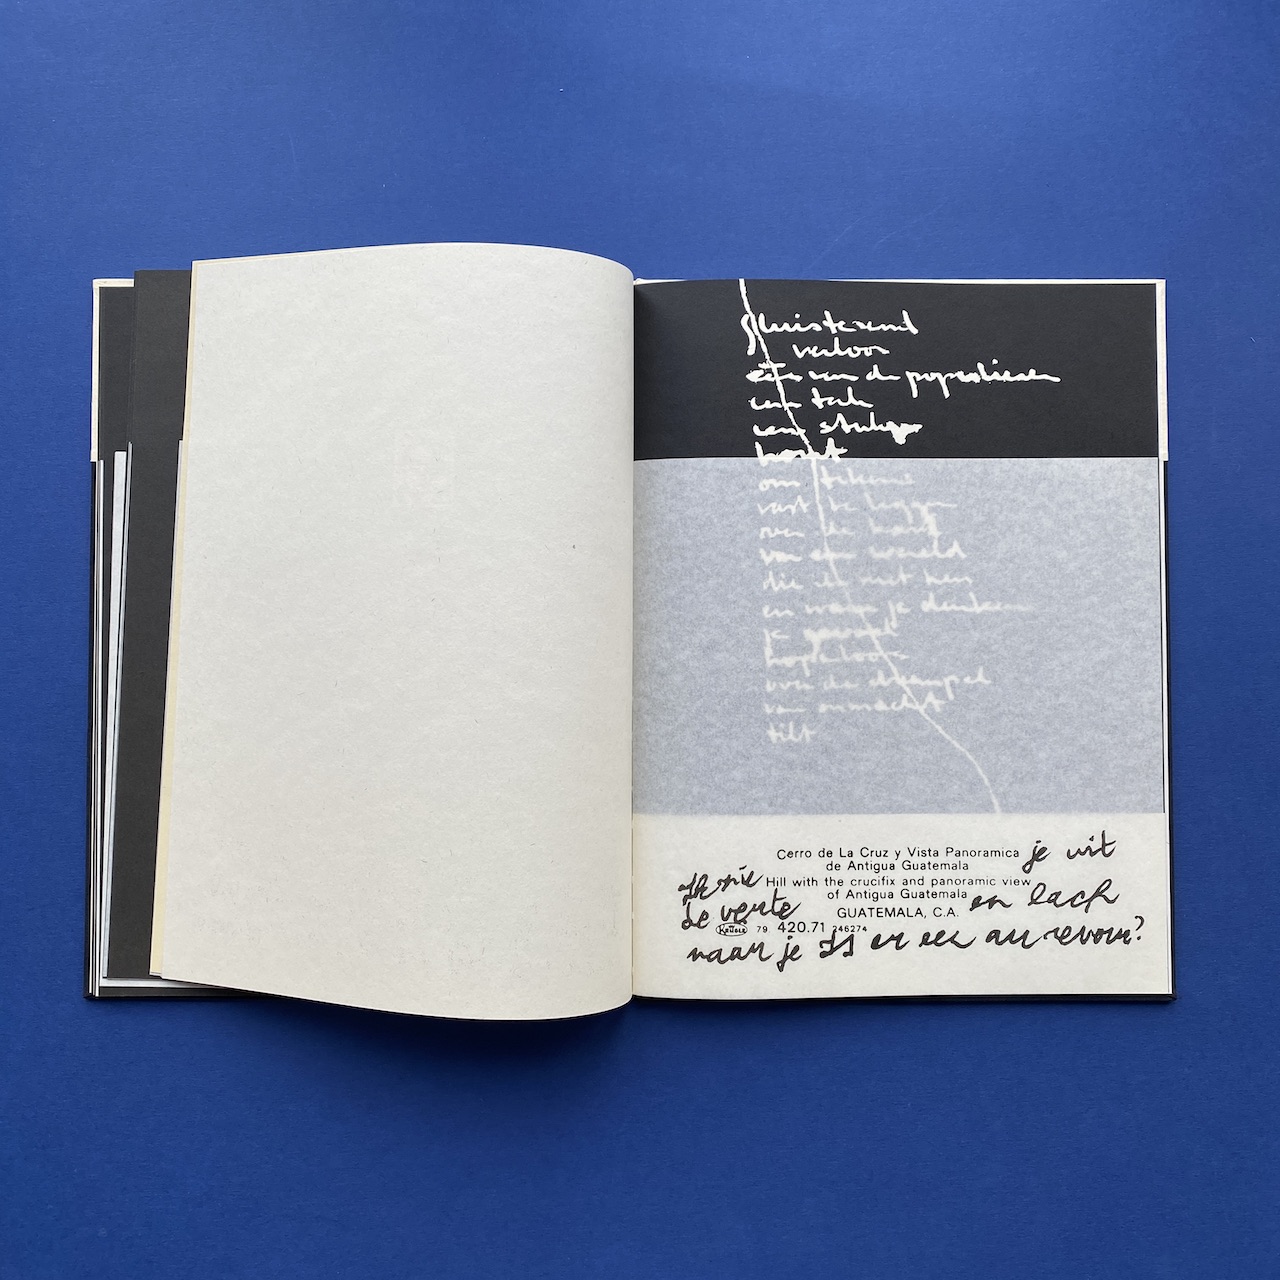 fluisterend
verloor
één van de popcolieren
een tak
een stukje
hout
om tekens
vast te leggen
over de hand
van een wereld
die ik niet ken
en waar je denkend
je
hopeloos
over de drempel
van onmacht
tilt
Cerro de La Cruz y Vista Panoramica je uit
de Antigua Guatemala
Ik zie Hill with the crucifix and panoramic view
of Antigua Guatemala en lach
de verte GUATEMALA, C.A.
79 420.71 246274
naar je Is er een au revoir?